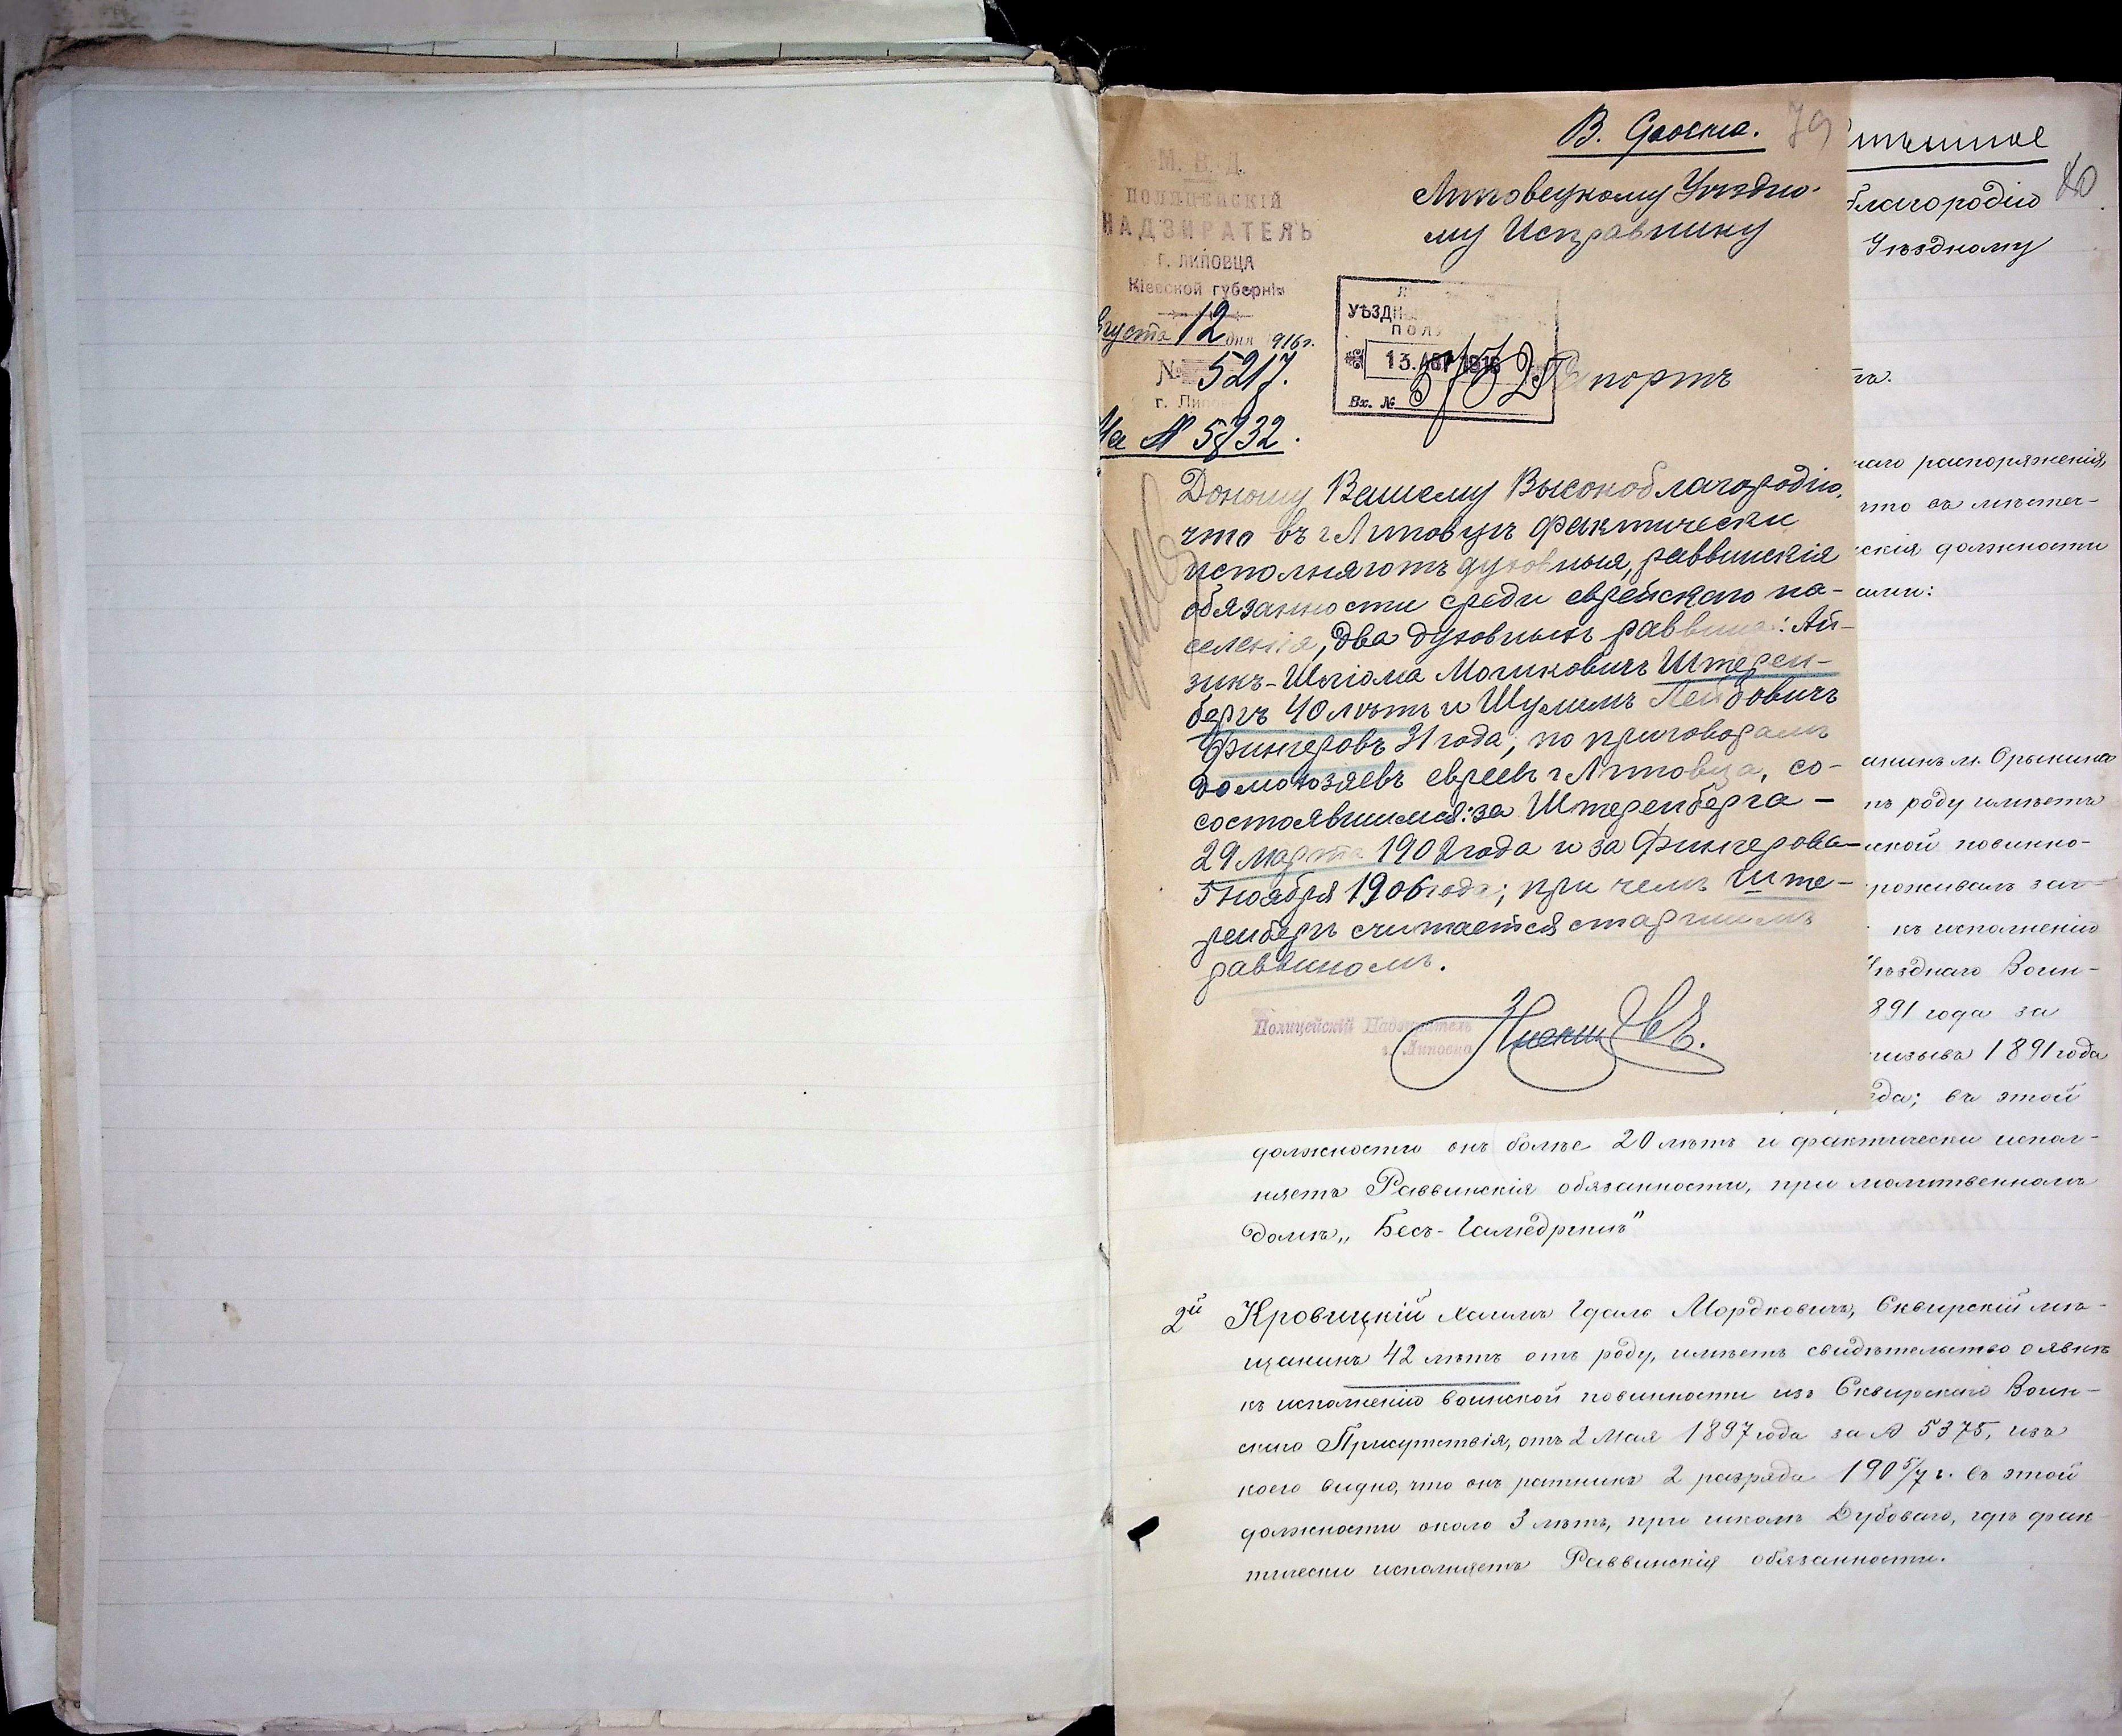 В. Спѣшно.
79
М. В. Д.
ПОЛИЦЕЙСКІЙ
НАДЗИРАТЕЛЬ
г. ЛИПОВЦА
Кіевской губерніи
Августа 12 дня 1916 г.
№ 5217.
г. Липовецъ
На № 5832.
Липовецкому Уѣздно-
му Исправнику
УѢЗДН
ПОЛ
13. АВГ 1916
Вх. №
Рапортъ
Доношу Вашему Высокоблагородію,
что въ г Липовцѣ фактически
исполняютъ духовныя, раввинскія
обязанности среди еврейскаго на-
селенія, два духовныхъ раввина: Ай-
зикъ-Шлiома Мошковичъ Штерен-
бергъ 40 лѣтъ и Шулимъ Лейбовичъ
Фингеровъ 31 года, по приговорамъ
домохозяевъ евреевъ г Липовца, со-
состоявшимся: за Штеренберга –
29 марта 1902 года и за Фингерова –
5 ноября 1906 года; при чемъ Ште-
ренбергъ считается старшимъ
раввиномъ.
Полицейскій Надзиратель
г. Липовца
80
благородію
Уѣздному
наго распоряженія,
что въ мѣстеч-
скія должности
анинъ м. Орынина
ъ роду имѣетъ
ской повинно-
роживалъ
къ исполненію
Уѣзднаго Воин-
891 года за
ризыва 1891 года
ода; въ этой
должности онъ болѣе 20 лѣтъ и фактически испол-
няетъ Раввинскія обязанности, при молитвенномъ
домѣ „Бесъ-Гамедришъ"
2й Кровицкій Хаимъ Гдаль Мордковичъ, Сквирскій мѣ-
щанинъ 42 лѣтъ отъ роду, имѣетъ свидѣтельство о явкѣ
къ исполненію воинской повинности изъ Сквирскаго Воин-
скаго Присутствія, отъ 2 Мая 1897 года за № 5375, изъ
коего видно, что онъ ратникъ 2 разряда 190 5/7 г. въ этой
должности около 3 лѣтъ, при школѣ Дубоваго, гдѣ фак-
тически исполняетъ Раввинскія обязанности.